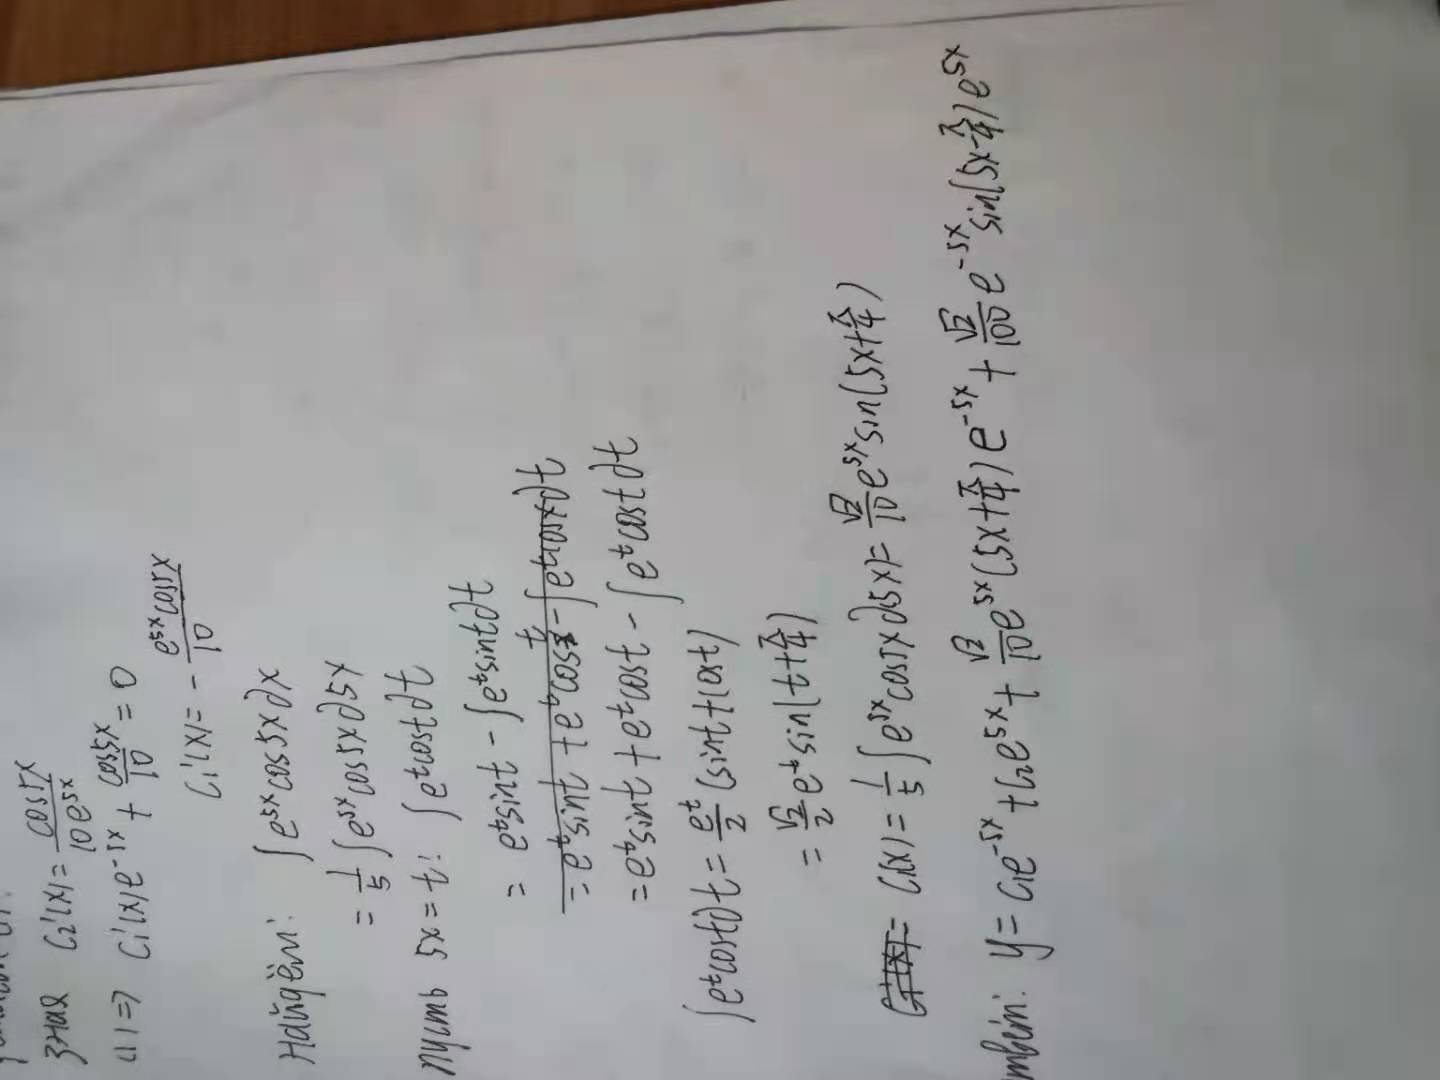 зная C₂'(x) = cos5x / 10e^{5x}
(1) => C₁'(x)e^{-5x} + cos5x/10 = 0
C₁'(x) = - e^{5x}cos5x / 10
Найдём: ∫e^{5x}cos5x∂x
= 1/5 ∫e^{5x}cos5x∂5x
пусть 5x = t: ∫e^t cost∂t
= e^t sint - ∫e^t sint∂t
= e^t sint + e^t cos t - ∫e^t cosx∂t
= e^t sint + e^t cost - ∫e^t cost∂t
∫e^t cost∂t = e^t/2 (sint+cost)
= √2/2 e^t sin(t+π/4)
C₁'(x) = C₁(x) = 1/5 ∫e^{5x}cos5x∂(5x) = √2/10 e^{5x}sin(5x+π/4)
твет: y = C₁e^{-5x} + C₂e^{5x} + √2/10 e^{5x}(5x+π/4)e^{-5x} + √2/100 e^{-5x}sin(5x-π/4)e^{5x}